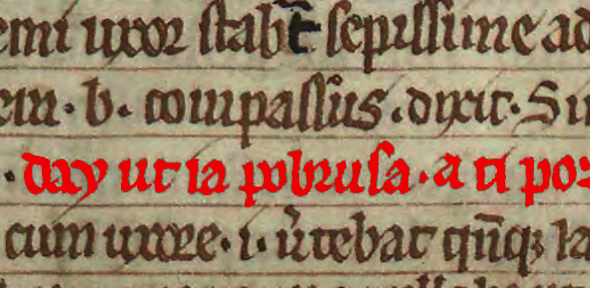 emi uxor stabt̄ sepissime ad
em · b · compassus · dixit · Si
· day ut ia pobrusa · a ti poz
cum uxore · i · v̓tebat qn̄q; la